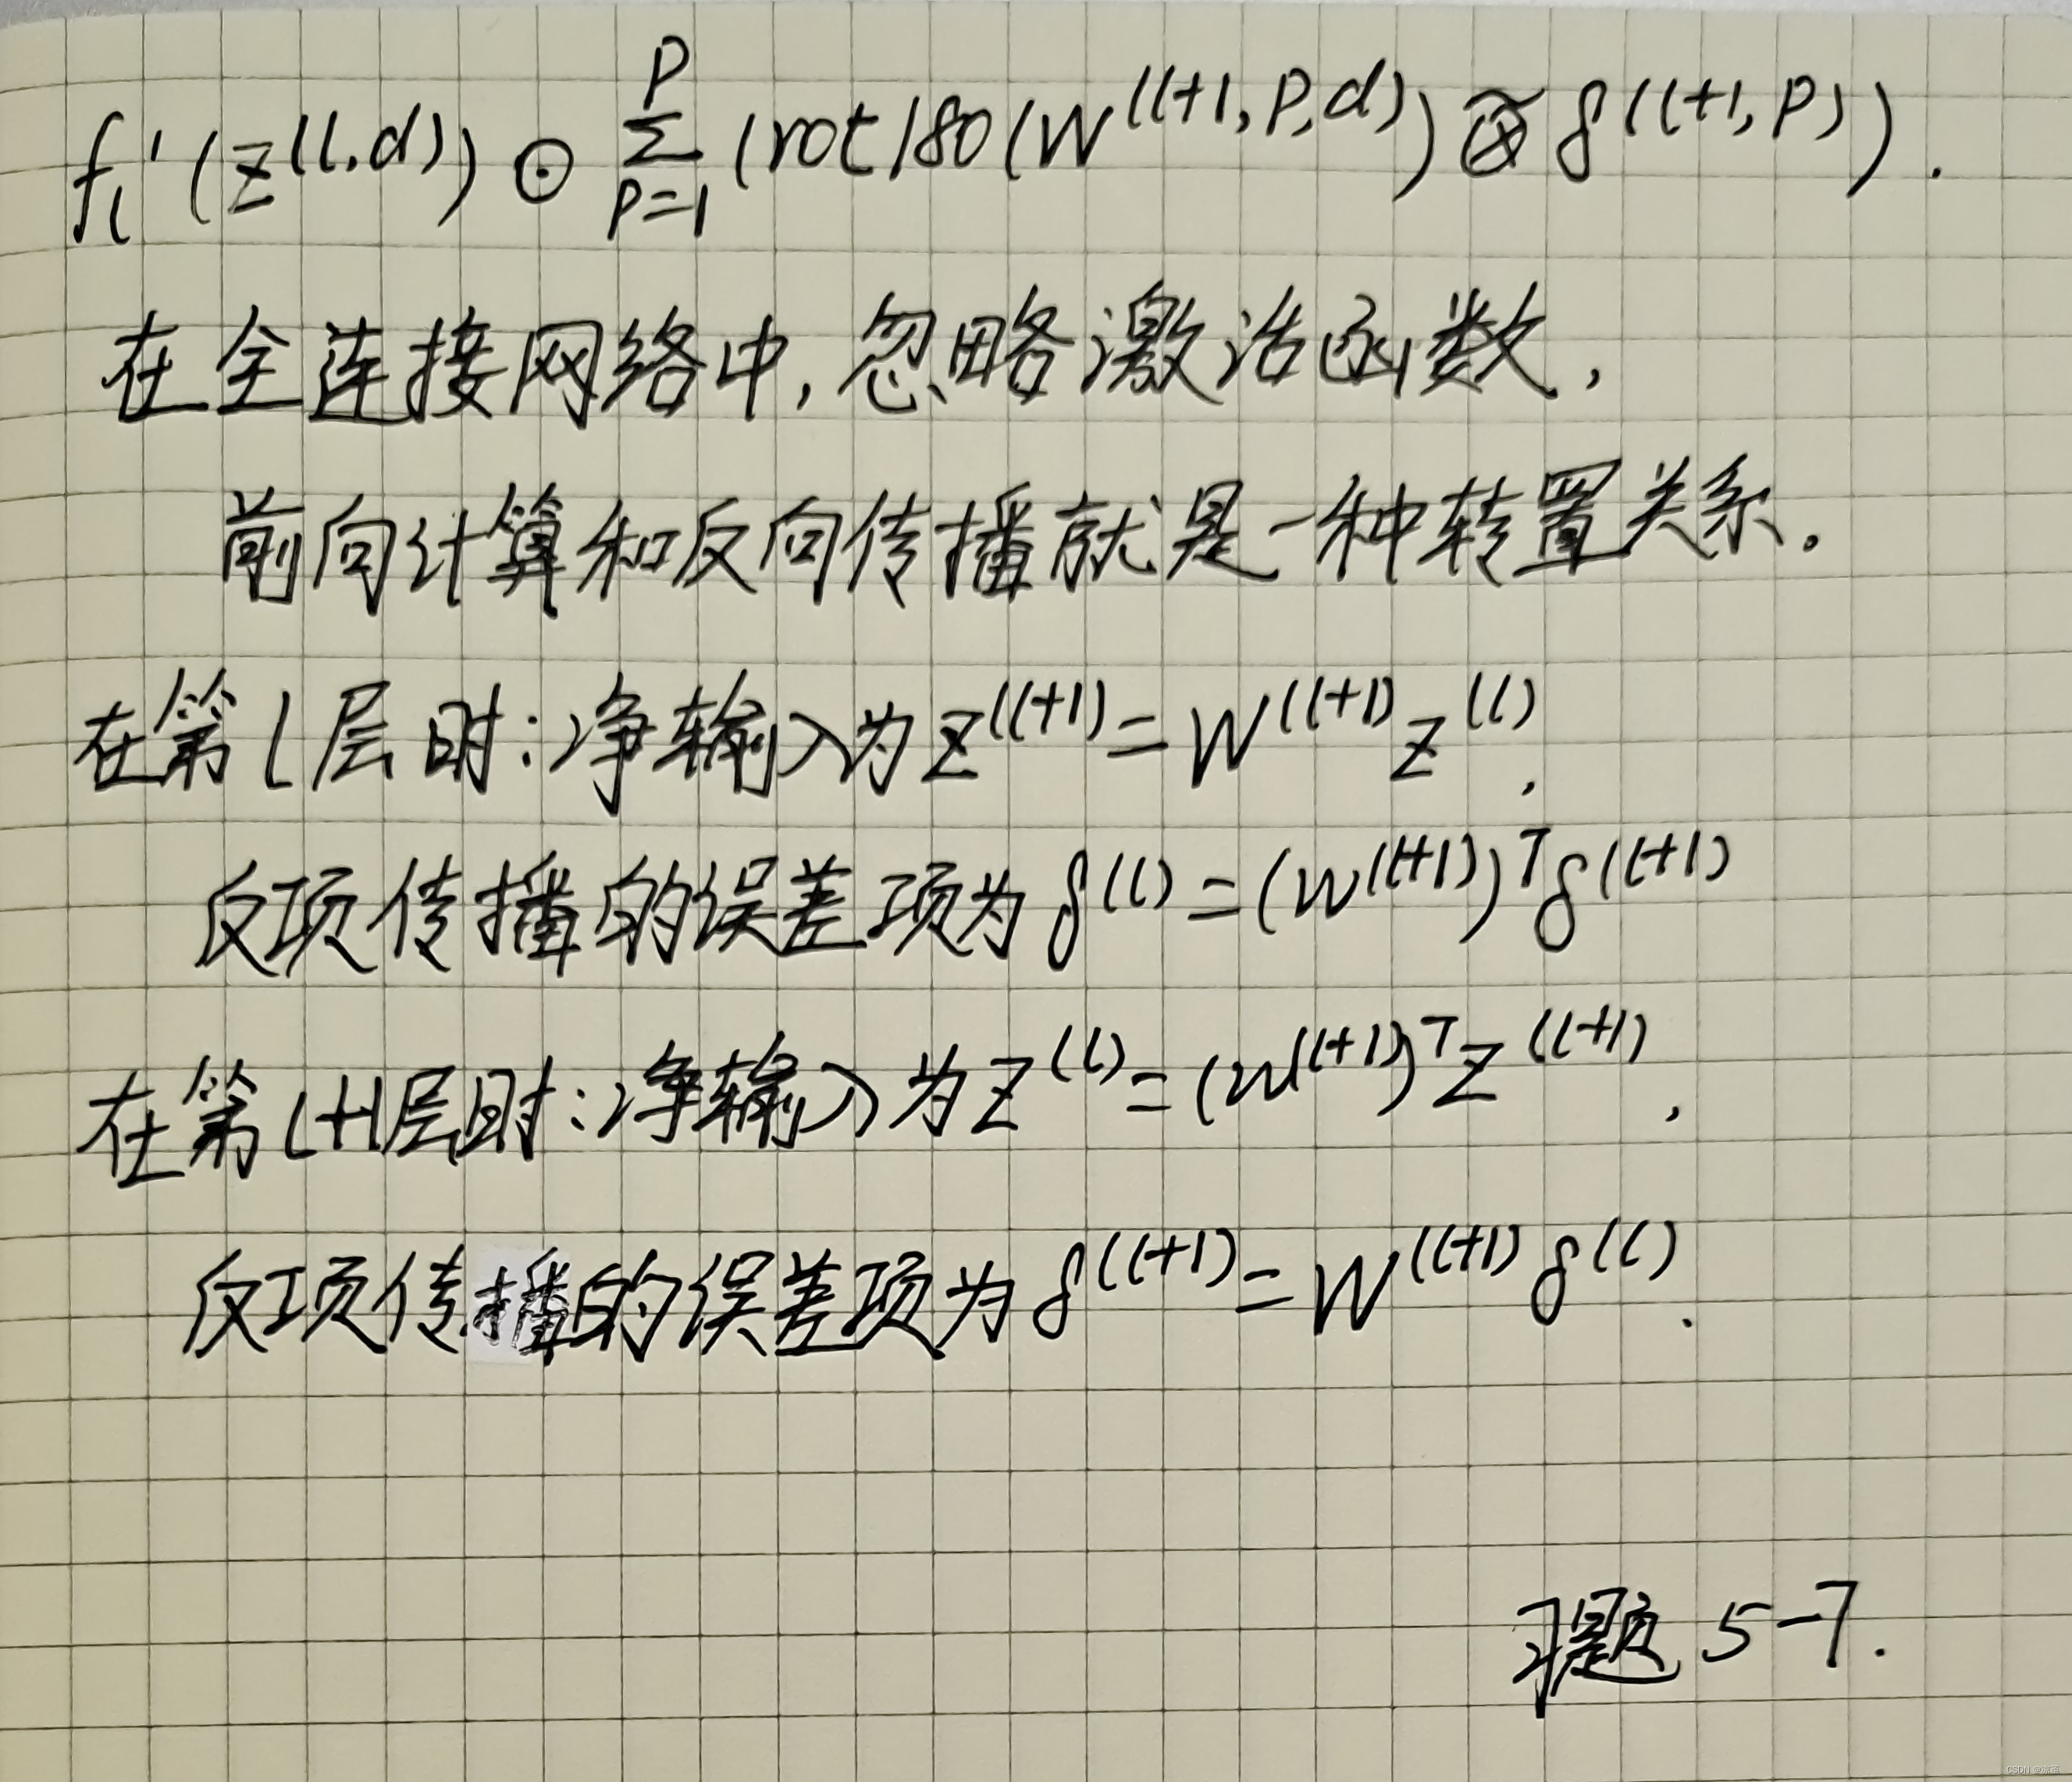 fₗ'(z^(l,d)) ⊙ Σ_{p=1}^{P} (rot180(W^(l+1,p,d)) ⊗̃ δ^(l+1,p)).
在全连接网络中,忽略激活函数,
前向计算和反向传播就是一种转置关系。
在第l层时:净输入为z^(l+1)=W^(l+1)z^(l),
反项传播的误差项为δ^(l)=(W^(l+1))^Tδ^(l+1)
在第l+1层时:净输入为z^(l)=(W^(l+1))^Tz^(l+1),
反项传播的误差项为δ^(l+1)=W^(l+1)δ^(l).
习题5-7.